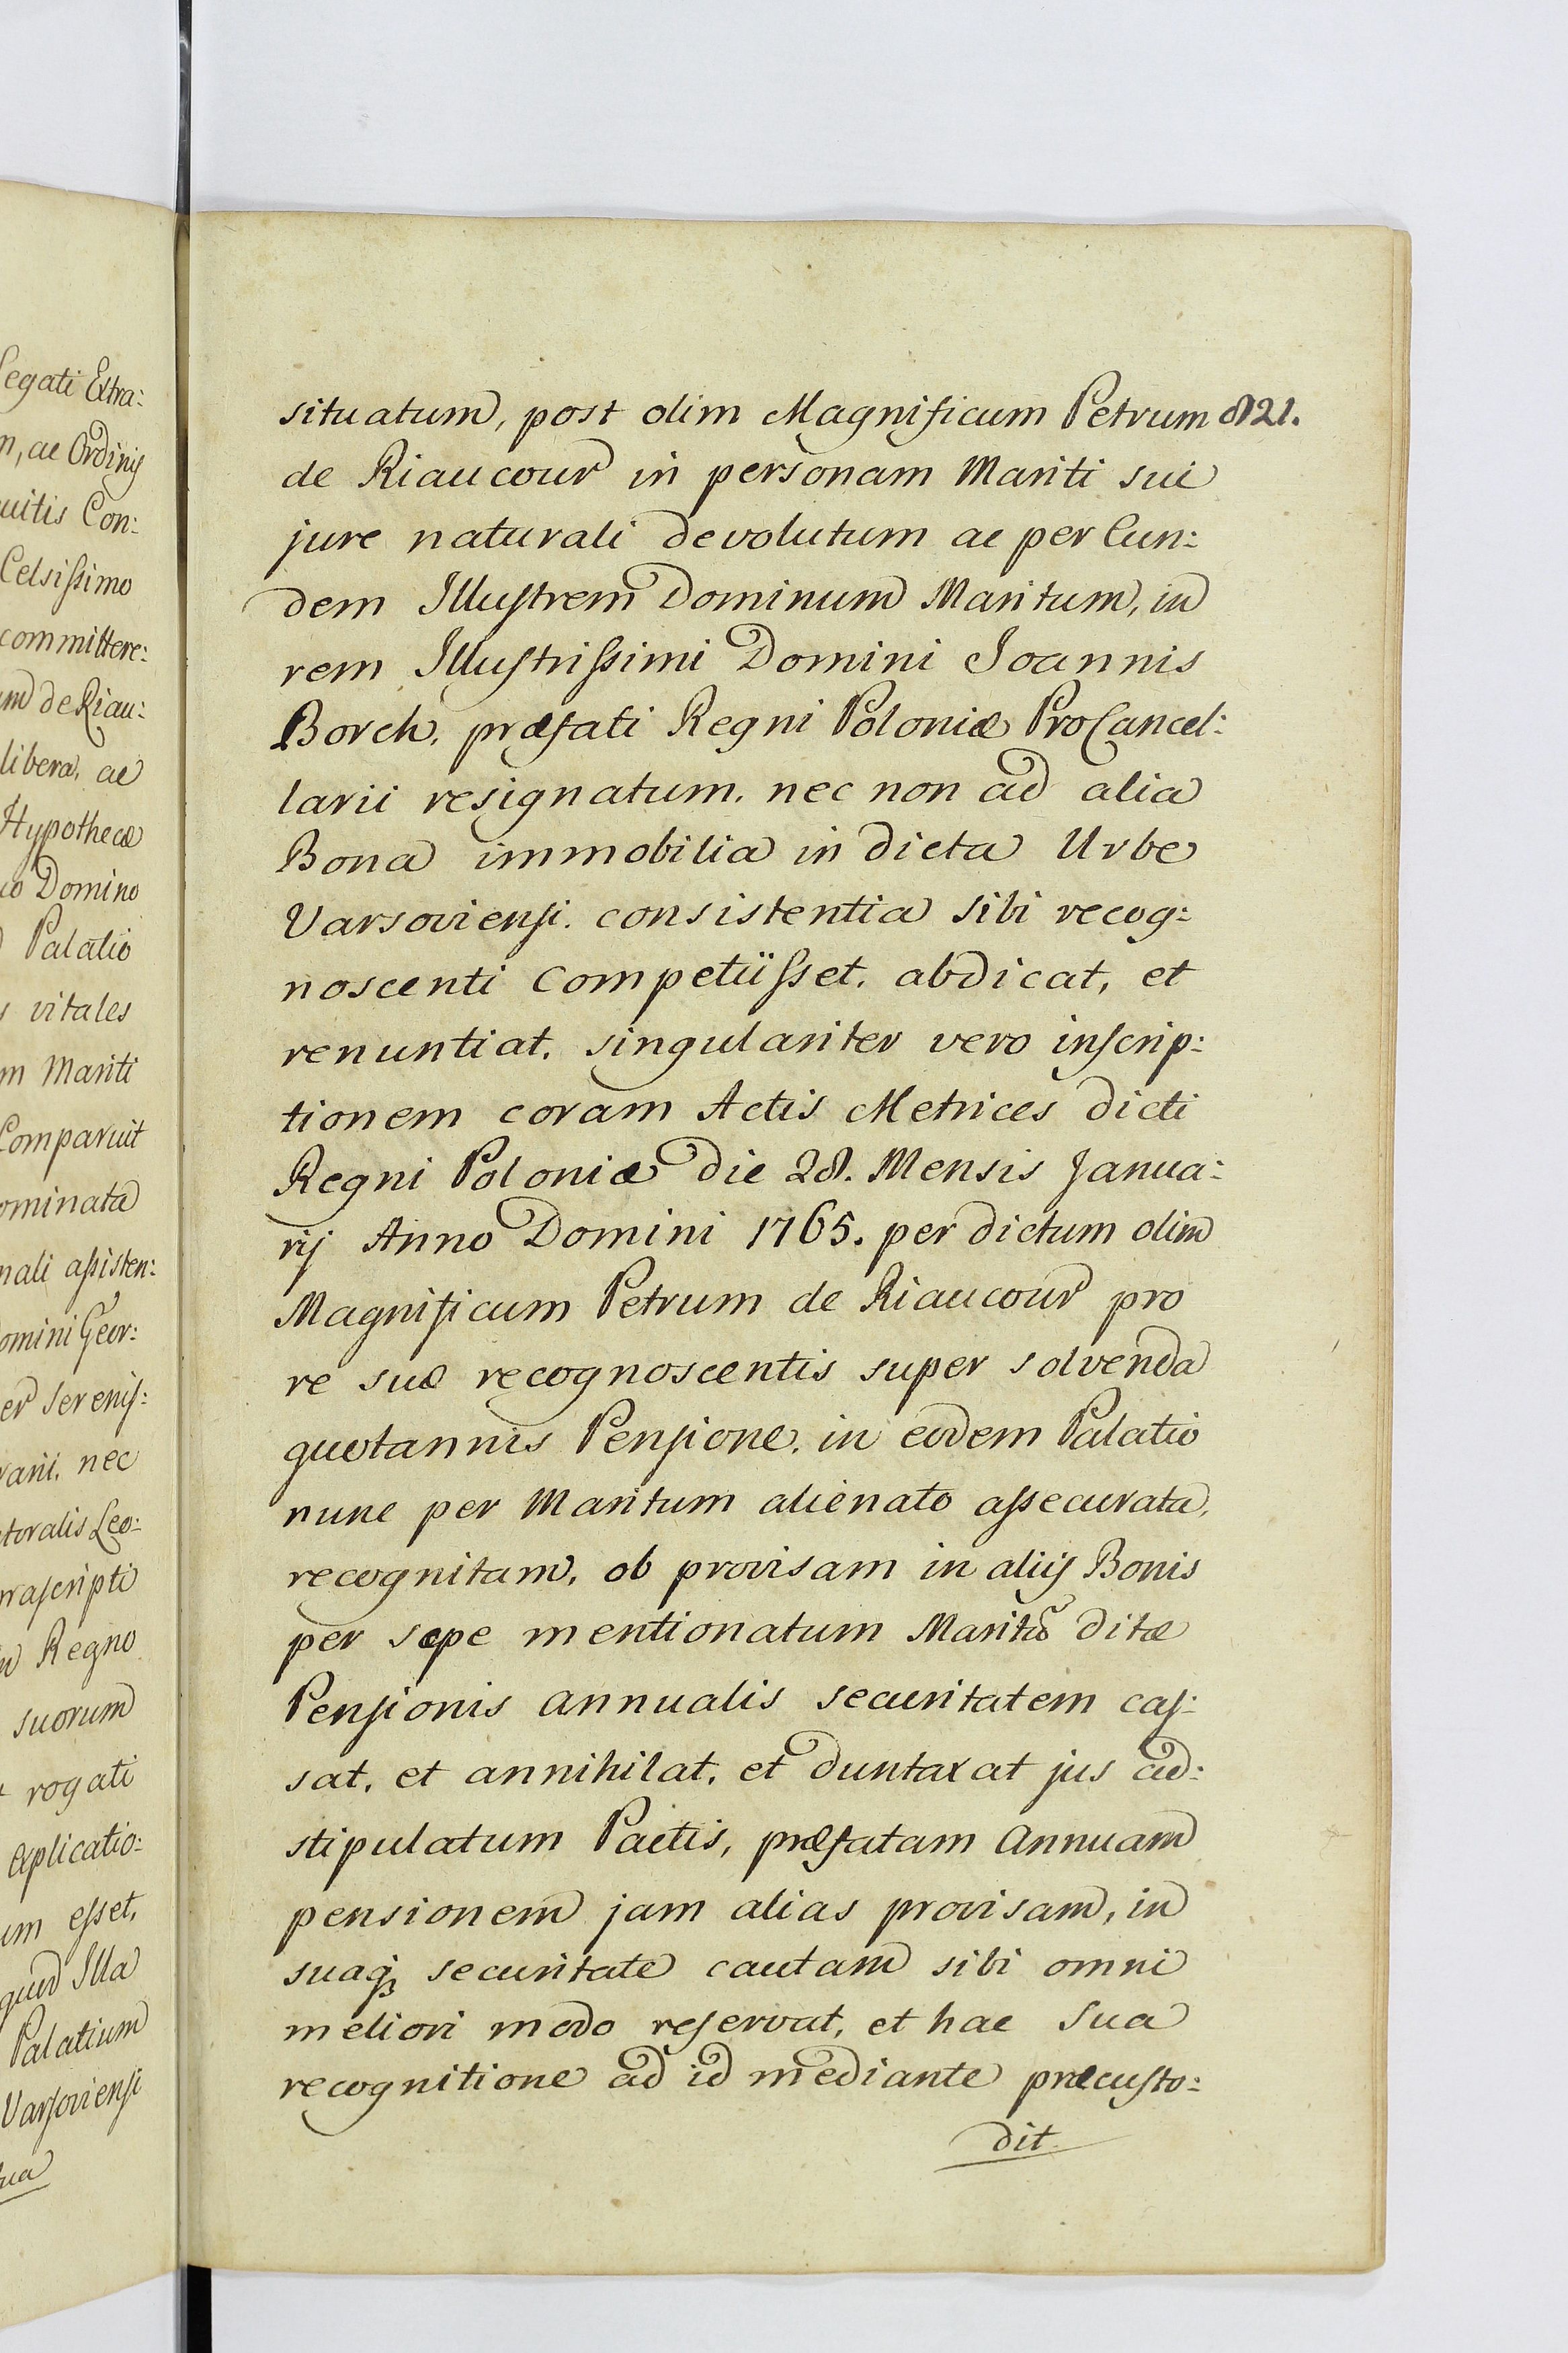 egati Extra:
n, ac Ordinis
uitis Con:
Celsissimo
committere:
um de Riau:
libera, ac
Hypothecæ
co Domino
Palatio
vitales
m Mariti
Comparuit
ominata
nali assisten:
omini Geor:
er Serenis:
rani, nec
toralis Leo:
rascripti
Regno
suorum
rogati
explicatio:
um esset,
quod Illa
Palatium
Varsoviensi
sua
821.
situatum, post olim Magnificum Petrum
de Riaucour in personam Mariti sui
jure naturali devolutum ac per Eun:
dem Illustrem Dominum Maritum, in
rem Illustrissimi Domini Joannis
Borch, præfati Regni Poloniæ ProCancel:
larii resignatum, nec non ad alia
Bona immobilia in dicta Urbe
Varsoviensi, consistentia sibi recog:
noscenti competiisset, abdicat, et
renuntiat, singulariter vero inscrip:
tionem coram Actis Metrices dicti
Regni Poloniæ die 28. Mensis Janua:
rij Anno Domini 1765. per dictum olim
Magnificum Petrum de Riaucour pro
re suæ recognoscentis super solvenda
quotannis Pensione, in eodem Palatio
nunc per Maritum alienato assecurata,
recognitam, ob provisam in aliis Bonis
per sæpe mentionatum Maritũ ditæ
Pensionis annualis securitatem cas:
sat, et annihilat, et duntaxat jus ad:
stipulatum Pactis, præfatam Annuam
pensionem jam alias provisam, in
suaq; securitate cautam sibi omni
meliori modo reservat, et hac sua
recognitione ad id mediante præcusto:
dit